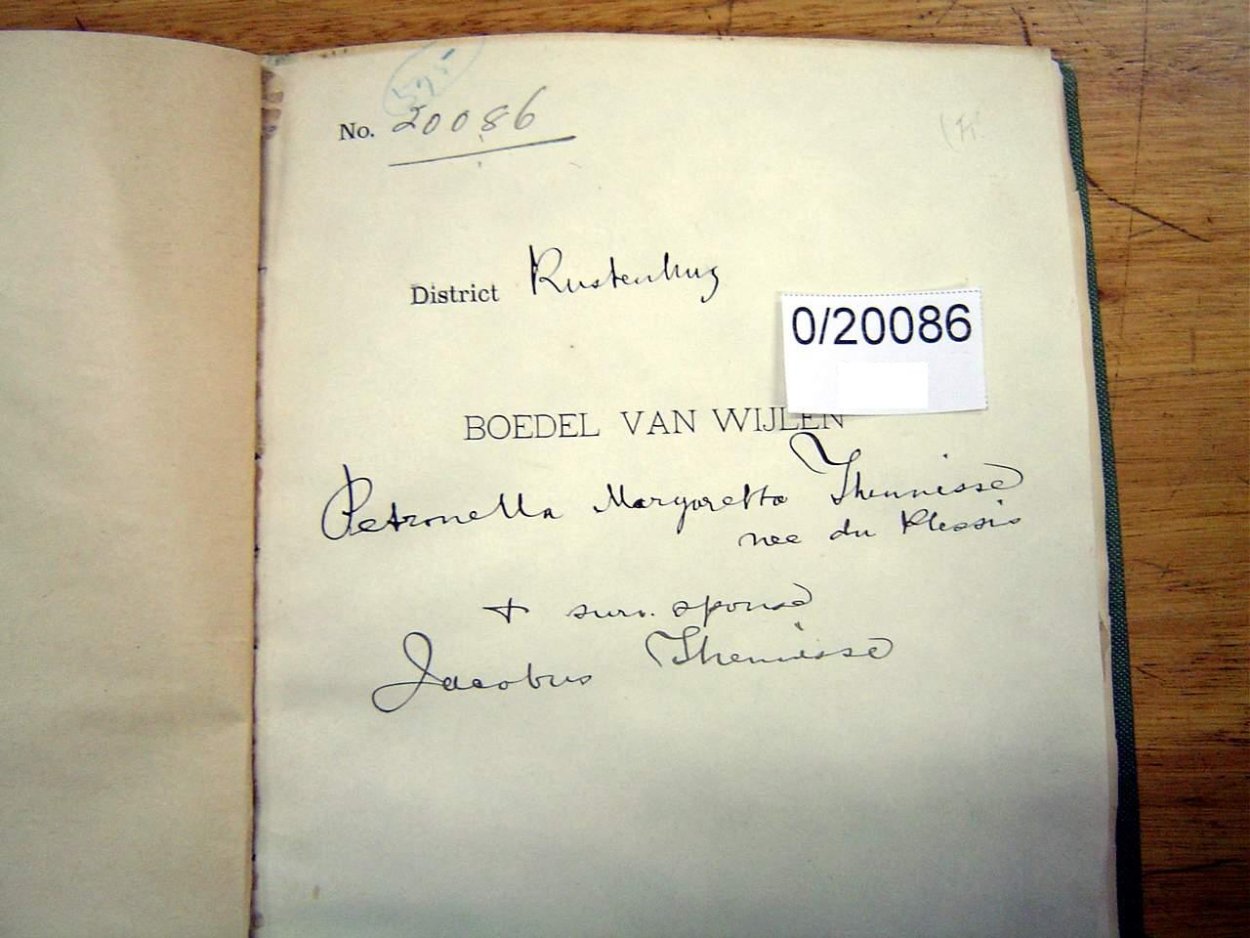 No. 20086
District Rustenburg
0/20086
BOEDEL VAN WIJLEN
Petronella Margaretta Theunisse
nee du Plessis
+ surv. spouse
Jacobus Theunisse